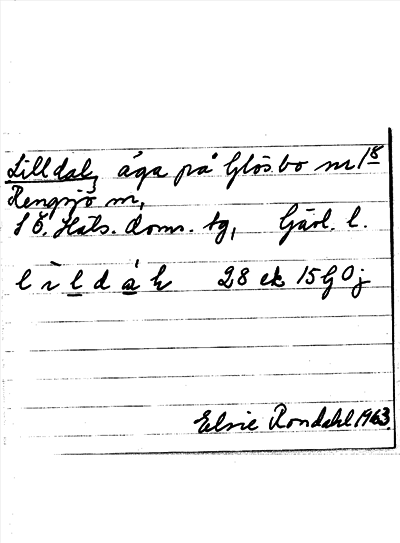 Lilldal, äga på Glösbo nr 1⁸
Rengsjö sn,
S Ö. Häls. doms. tg, Gävl. l.
l ì l d á h 28 ek 15 G 0 j
Elsie Rondahl 1963.